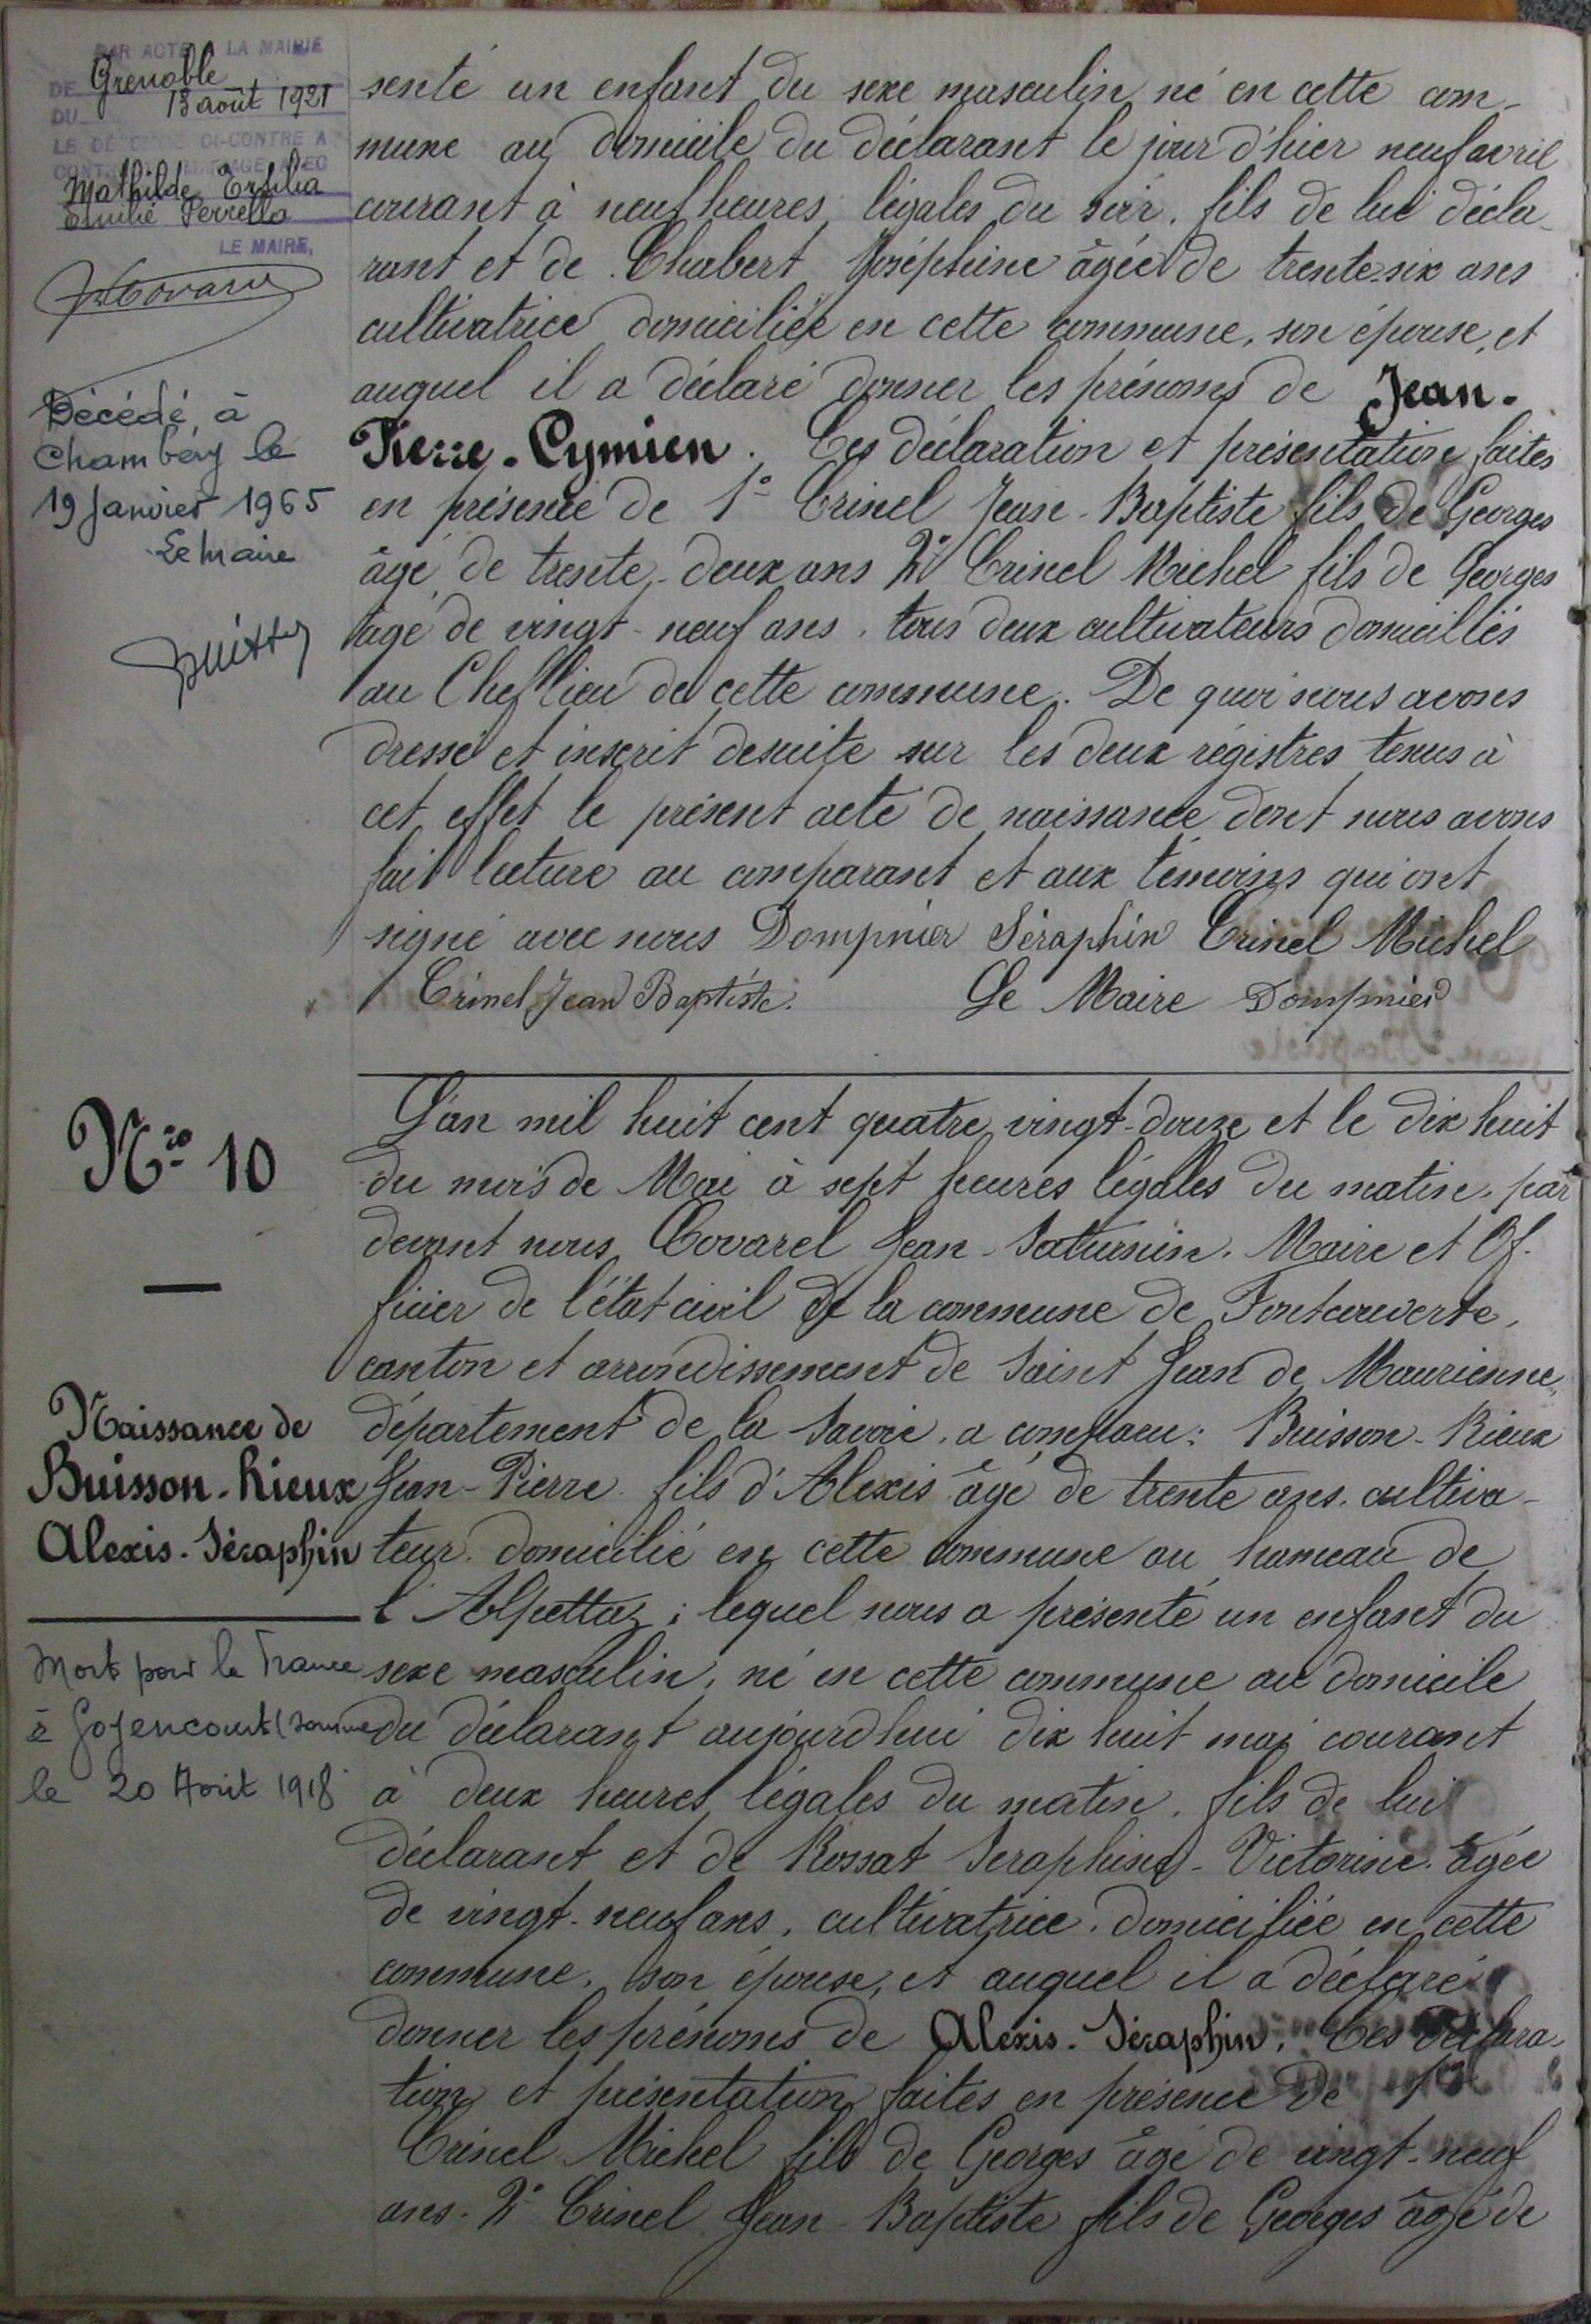 PAR ACTE A LA MAIRIE
DE Grenoble
DU 13 août 1921
LE DÉNOMMÉ CI-CONTRE A
CONTRACTÉ MARIAGE AVEC
Mathilde Ersilia
Emilie Perrella
LE MAIRE,
Décédé, à
Chambéry le
19 Janvier 1965
Le Maire
senté un enfant du sexe masculin né en cette com-
mune au domicile du déclarant le jour d'hier neuf avril
courant à neuf heures légales du soir. fils de lui décla-
rant et de Chabert Joséphine âgée de trente-six ans
cultivatrice domiciliée en cette commune, son épouse, et
auquel il a déclaré donner les prénoms de Jean-
Pierre-Cymien. Ces déclaration et présentation faites
en présence de 1° Crinel Jean-Baptiste fils de Georges
âgé de trente-deux ans 2° Crinel Michel fils de Georges
âgé de vingt-neuf ans, tous deux cultivateurs domiciliés
au Chef lieu de cette commune. De quoi nous avons
dressé et inscrit desuite sur les deux régistres tenus à
cet effet le présent acte de naissance dont nous avons
fait lecture au comparant et aux témoins qui ont
signé avec nous Dompnier Séraphin Crinel Michel
Crinel Jean Baptiste. Le Maire Dompnier
Nro 10
Naissance de
Buisson-Rieux
Alexis-Séraphin
Mort pour la France
à Goyencourt (Somme
le 20 Août 1918
L'an mil huit cent quatre vingt-douze et le dix huit
du mois de Mai à sept heures légales du matin, par
devant nous Covarel Jean-Saturnin. Maire et Of-
ficier de l'état civil de la commune de Fontcouverte,
canton et arrondissement de Saint Jean de Maurienne,
département de la Savoie, a comparu: Buisson-Rieux
Jean-Pierre fils d'Alexis âgé de trente ans, cultiva-
teur, domicilié en cette commune au hameau de
l'Alpettaz; lequel nous a présenté un enfant du
sexe masculin, né en cette commune au domicile
du déclarant aujourdhui dix huit mai courant
à deux heures légales du matin. fils de lui
déclarant et de Rossat Seraphine-Victorine âgée
de vingt-neuf ans, cultivatrice, domiciliée en cette
commune, son épouse, et auquel il a déclaré
donner les prénoms de Alexis-Séraphin. Ces déclara-
tion et présentation faites en présence de 1°
Crinel Michel fils de Georges âgé de vingt-neuf
ans. 2° Crinel Jean-Baptiste fils de Georges âgé de